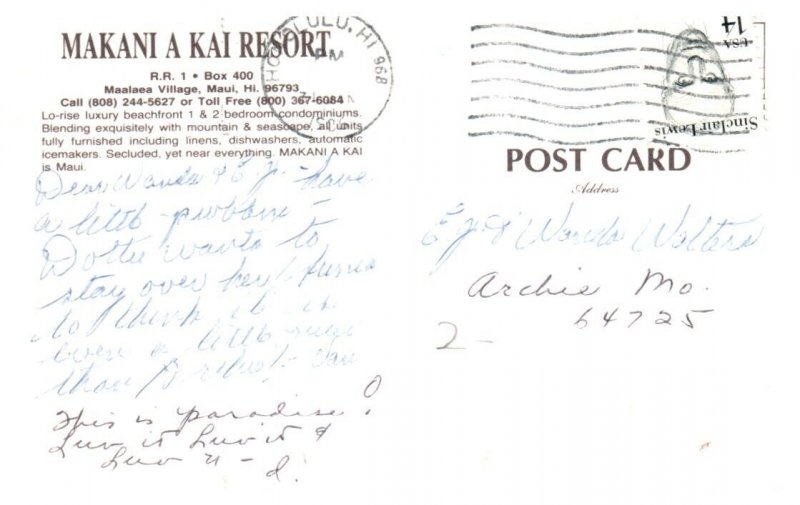 MAKANI A KAI RESORT
R.R. 1 • Box 400
Maalaea Village, Maui, Hi. 96793
Call (808) 244-5627 or Toll Free (800) 367-6084
Lo-rise luxury beachfront 1 & 2 bedroom condominiums.
Blending exquisitely with mountain & seascape, all units
fully furnished including linens, dishwashers, automatic
icemakers. Secluded, yet near everything. MAKANI A KAI
is Maui.
Dear Wanda & E J - have
a little problem -
Dottie wants to
stay over here!
to think it is
even a little
than
This is paradise!
Luv it Luv it &
Luv it - d.
HONOLULU, HI 968
PM
USA 14
Sinclair Lewis
POST CARD
Address
E J & Wanda Walters
Archie Mo.
64725
2-